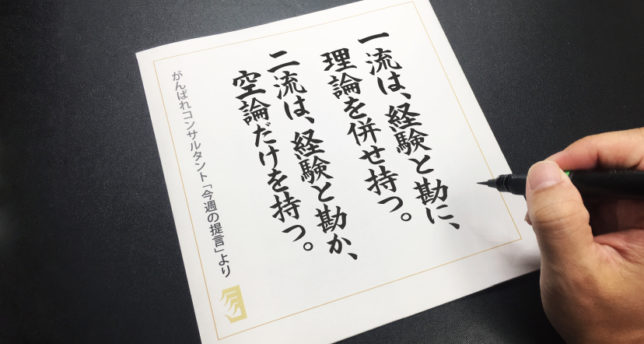 一流は、経験と勘に、
理論を併せ持つ。
二流は、経験と勘か、
空論だけを持つ。
がんばれコンサルタント「今週の提言」より